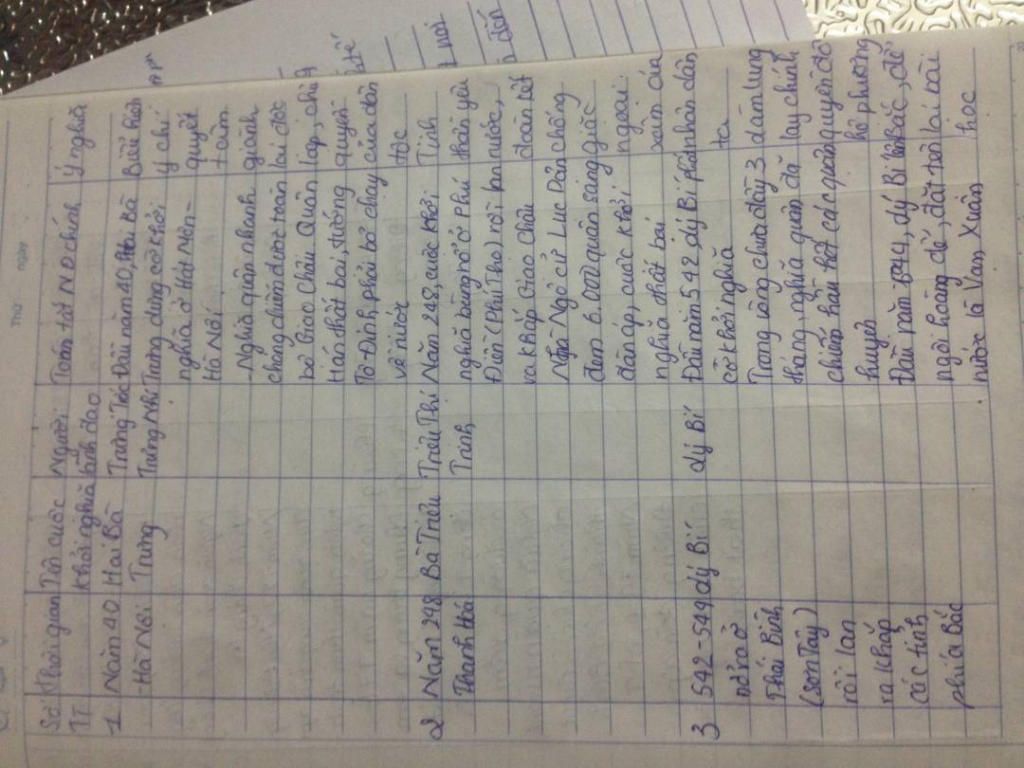 Thứ ngày
Số Thời gian Tên cuộc Người Tóm tắt ND chính Ý nghĩa
TT khởi nghĩa lãnh đạo
1 Năm 40 Hai Bà Trưng Trắc Đầu năm 40, Hai Bà Biểu hiện
-Hà Nội Trưng Trưng Nhị Trưng dựng cờ khởi ý chí
nghĩa ở Hát Môn- quyết
Hà Nội. tâm
-Nghĩa quân nhanh giành
chóng chiếm được toàn lại độc
bộ Giao Châu. Quân lập, chủ
Hán thất bại, tướng quyền
Tô Định phải bỏ chạy của dân
về nước tộc
2 Năm 248 Bà Triệu Triệu Thị Năm 248, cuộc khởi Tinh
Thanh Hoá Trinh nghĩa bùng nổ ở Phú thần yêu
Điền (Phú Thọ) rồi lan nước,
ra khắp Giao Châu đoàn kết
Ngô cử Lục Dận chống
đem 6.000 quân sang giặc
đàn áp, cuộc khởi ngoại
nghĩa thất bại xâm của
3 542-544 Lý Bí Lý Bí Đầu năm 542 Lý Bí phất nhân dân
nổ ra ở cờ khởi nghĩa ta
Thái Bình Trong vòng chưa đầy 3 dám lung
(Sơn Tây) tháng, nghĩa quân đã lay chính
rồi lan chiếm hầu hết các quận quyền đô
ra khắp huyện hộ phương
các tỉnh Đầu năm 544, Lý Bí lên Bắc, để
phía Bắc ngôi hoàng đế, đặt tên lại bài
nước là Vạn Xuân học